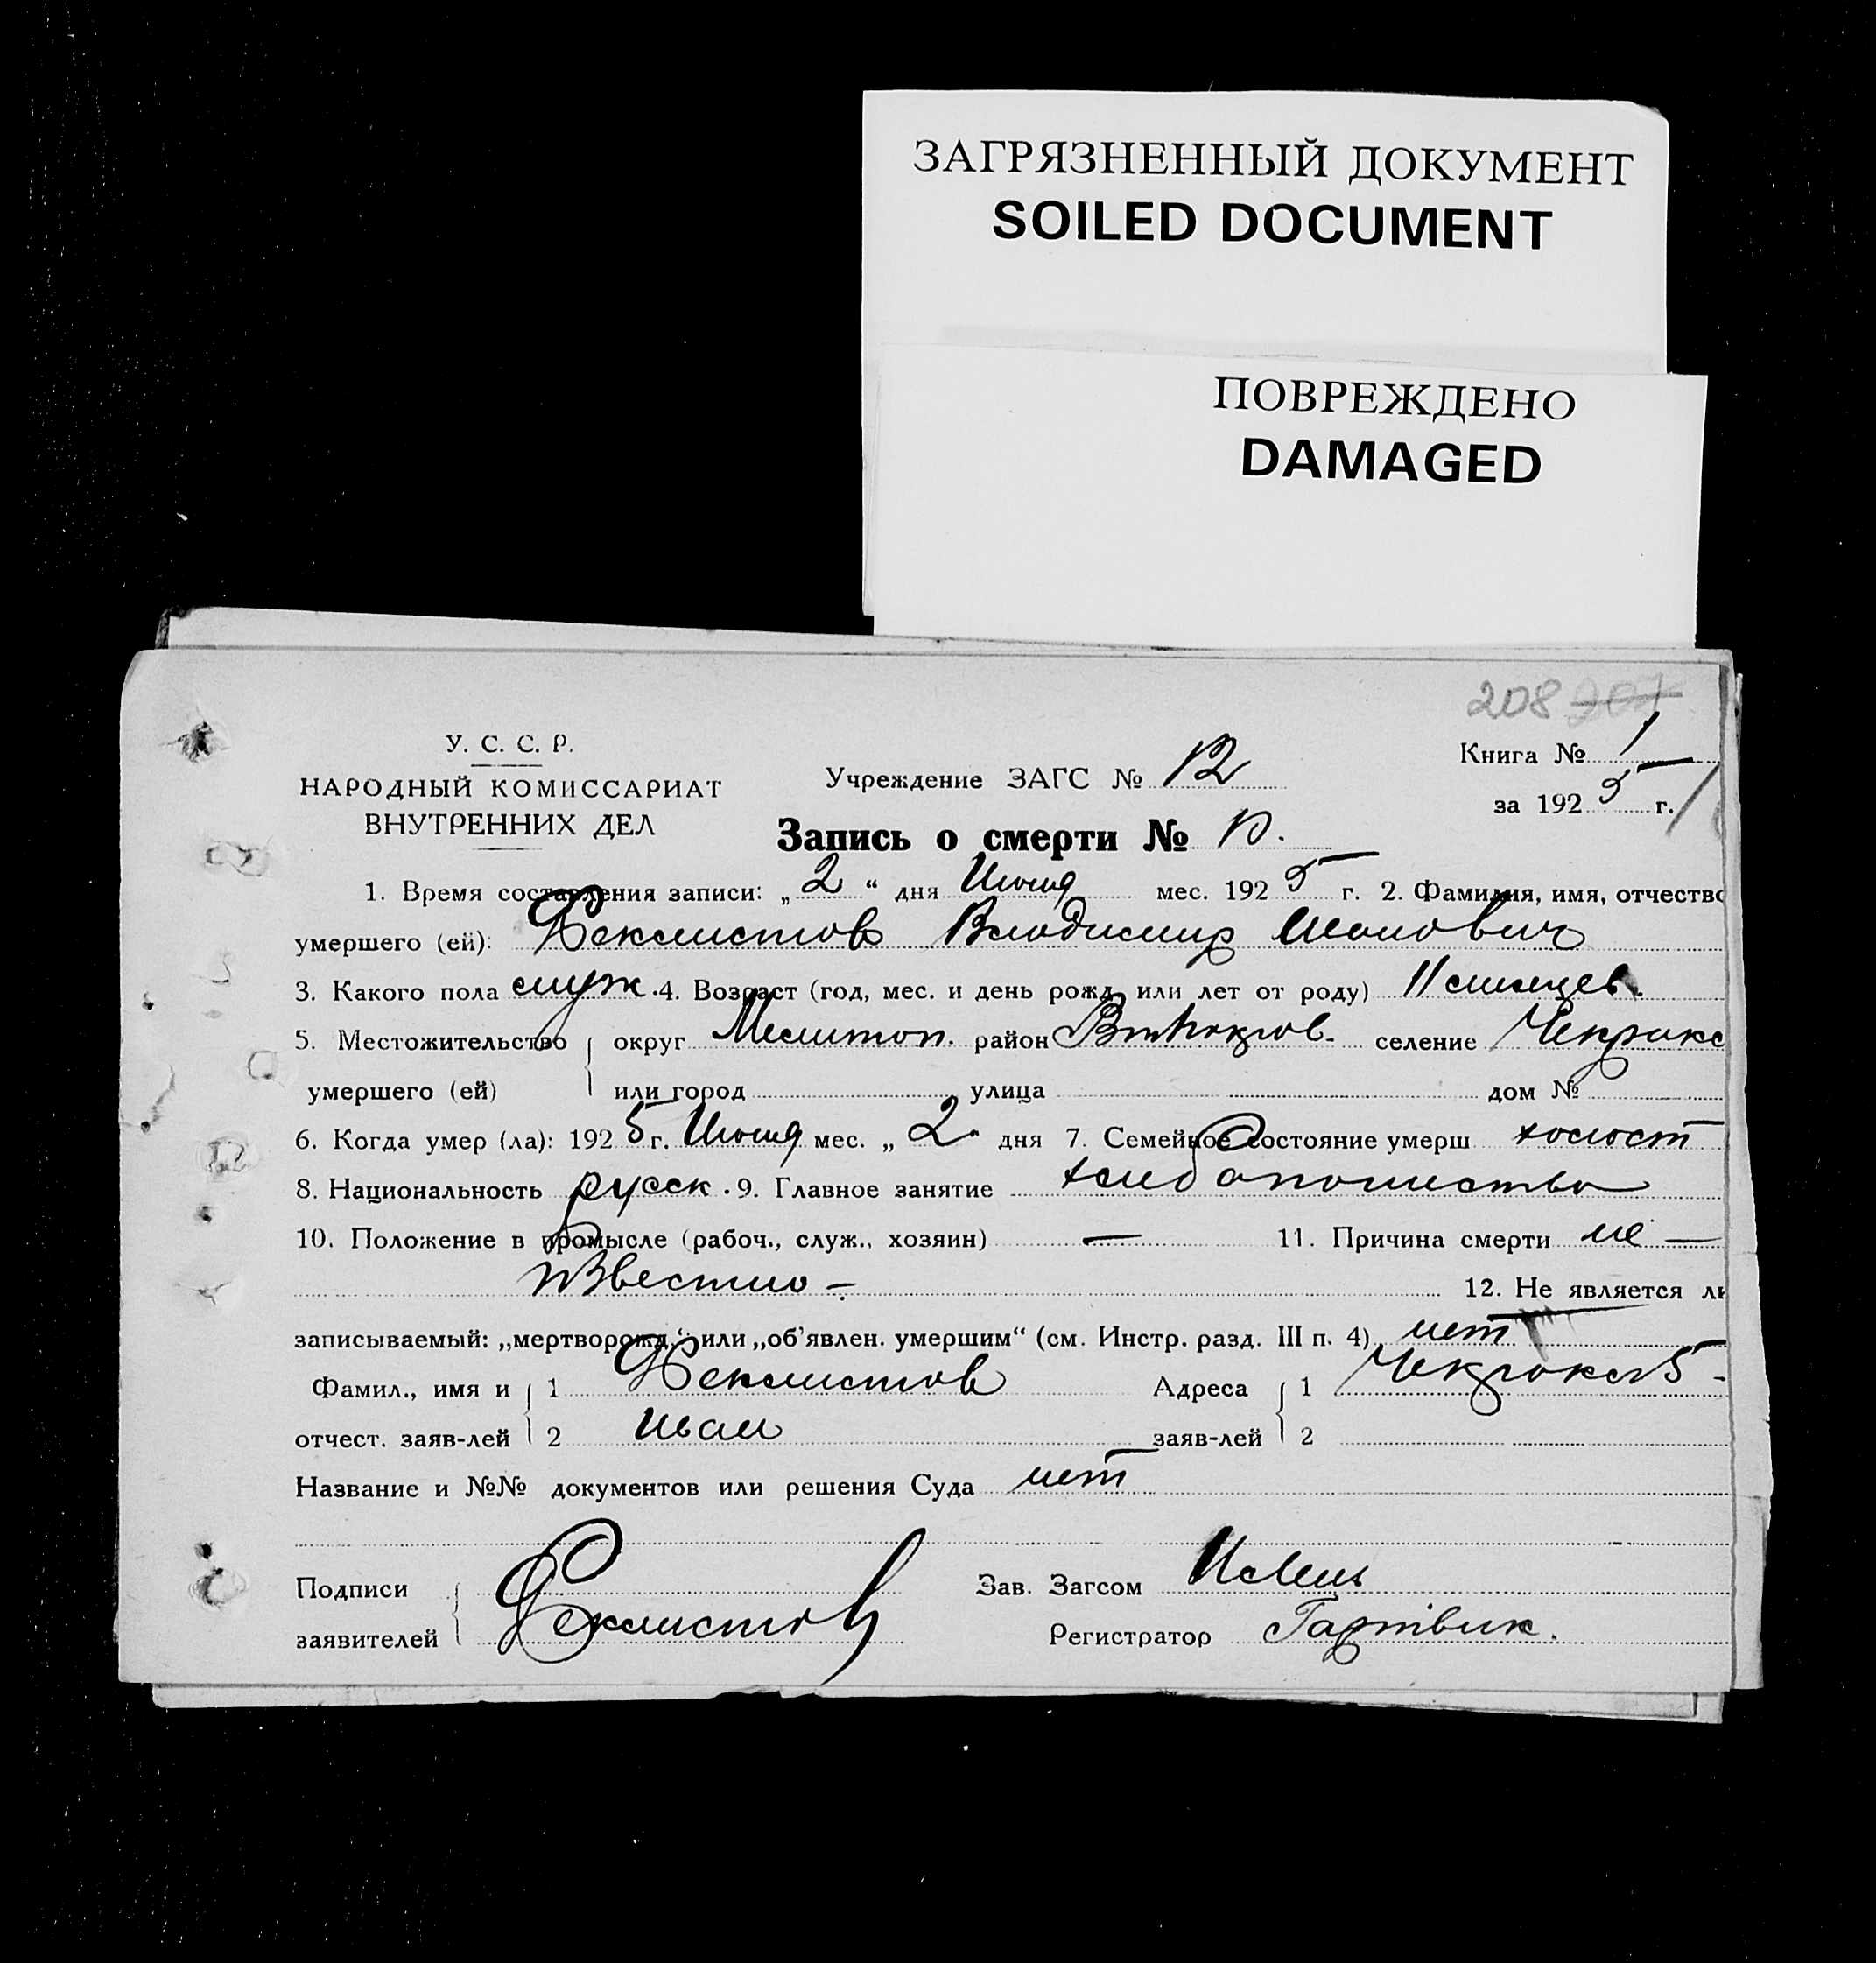 ЗАГРЯЗНЕННЫЙ ДОКУМЕНТ
SOILED DOCUMENT
ПОВРЕЖДЕНО
DAMAGED
208 207
У. С. С. Р.
НАРОДНЫЙ КОМИССАРИАТ
ВНУТРЕННИХ ДЕЛ
Учреждение ЗАГС № 12
Книга № 1
за 1925 г.
Запись о смерти №
1. Время составления записи: „2“ дня Июня мес. 1925 г. 2. Фамилия, имя, отчество
умершего (ей): Феклистов Владимир Иванович
3. Какого пола муж. 4. Возраст (год, мес. и день рожд. или лет от роду) 11 месяцев.
5. Местожительство округ Мелитоп. район селение Чекрак
умершего (ей) или город улица дом №
6. Когда умер (ла): 1925 г. Июня мес. „2“ дня 7. Семейное состояние умерш холост
8. Национальность русск. 9. Главное занятие хлебопашество
10. Положение в промысле (рабоч., служ., хозяин) — 11. Причина смерти не —
известно — 12. Не является ли
записываемый: „мертворожд.“ или „об'явлен. умершим“ (см. Инстр. разд. III п. 4) нет
Фамил., имя и 1 Феклистов Адреса 1
отчест. заяв-лей 2 Иван заяв-лей 2
Название и №№ документов или решения Суда нет
Подписи Зав. Загсом
заявителей Феклистов Регистратор Гартвик.